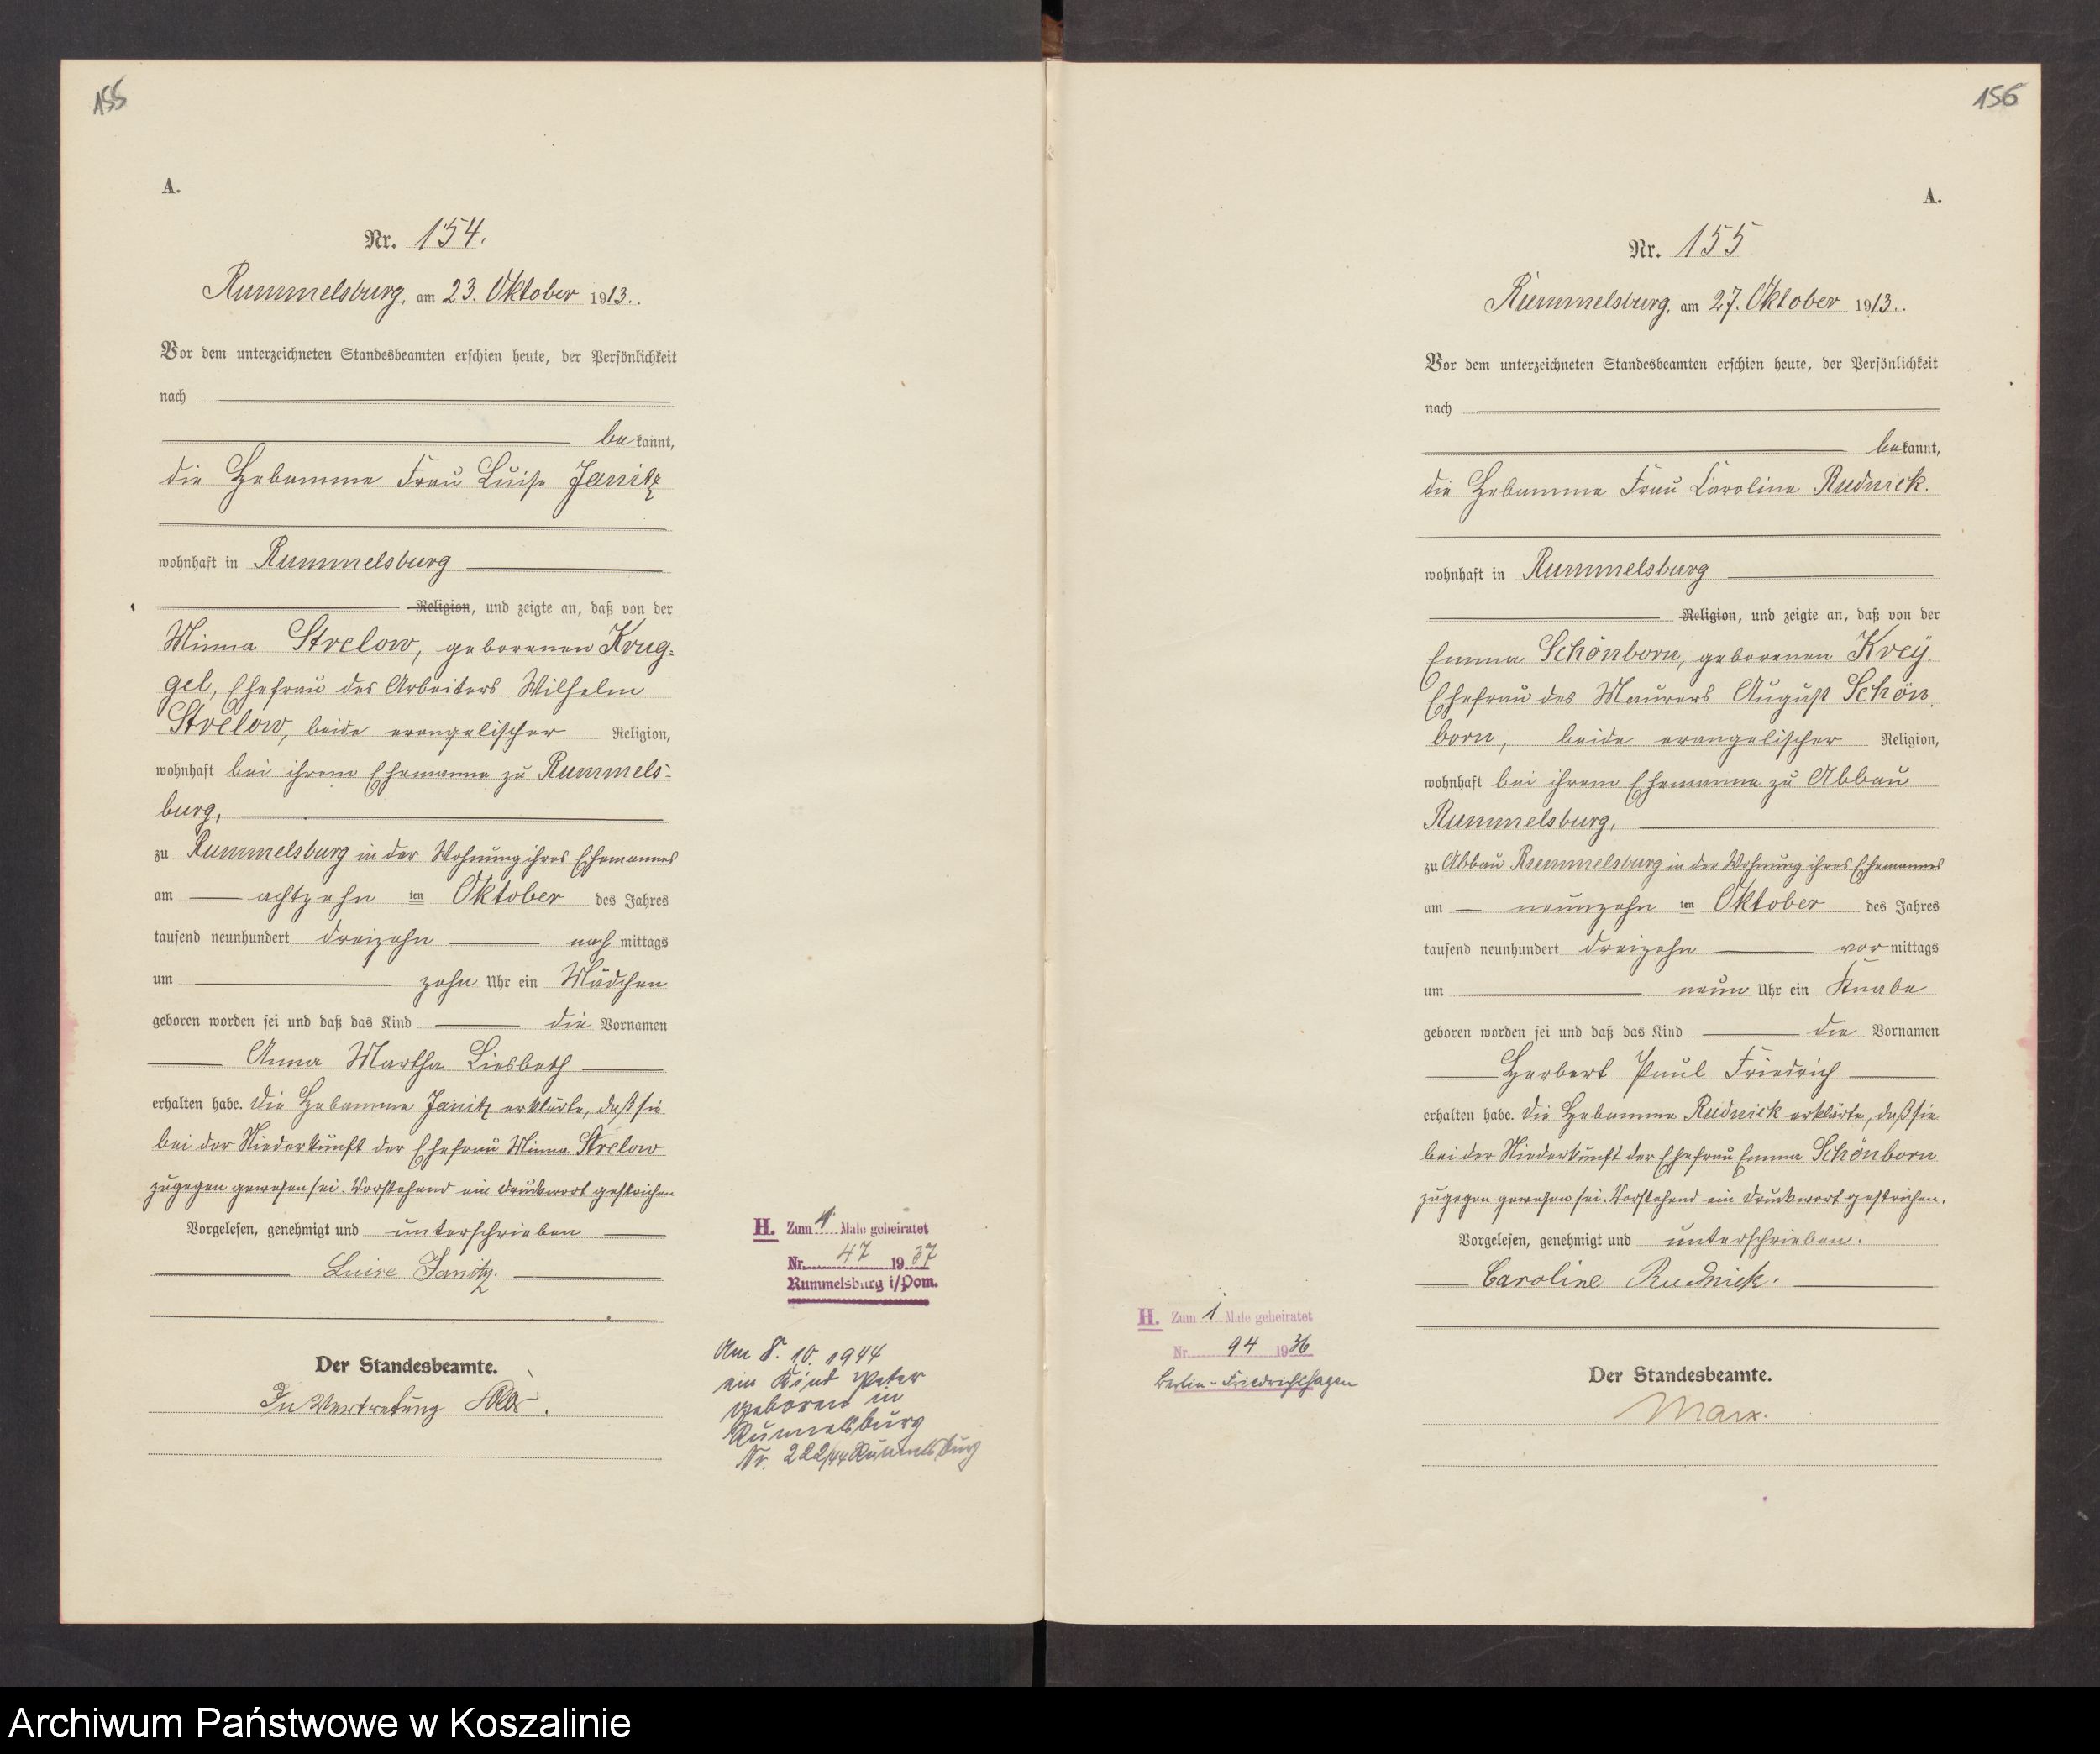 155
A.
Nr. 154.
Rummelsburg, am 23. Oktober 1913.
Vor dem unterzeichneten Standesbeamten erschien heute, der Persönlichkeit
nach
bekannt,
die Hebamme Frau Luise Janitz
wohnhaft in Rummelsburg
Religion, und zeigte an, daß von der
Minna Strelow, geborenen Krug-
gel, Ehefrau des Arbeiters Wilhelm
Strelow, beide evangelischer Religion,
wohnhaft bei ihrem Ehemanne zu Rummels-
burg,
zu Rummelsburg in der Wohnung ihres Ehemannes
am achtzehn ten Oktober des Jahres
tausend neunhundert dreizehn nach mittags
um zehn Uhr ein Mädchen
geboren worden sei und daß das Kind die Vornamen
Anna Martha Liesbeth
erhalten habe. Die Hebamme Janitz erklärte, daß sie
bei der Niederkunft der Ehefrau Minna Strelow
zugegen gewesen sei. Vorstehend ein Druckwort gestrichen
Vorgelesen, genehmigt und unterschrieben
Luise Janitz.
Der Standesbeamte.
In Vertretung
H. Zum 1 Male geheiratet
Nr. 47 1937
Rummelsburg i/Pom.
Am 8. 10. 1944
ein Kind Peter
geboren in
Rummelsburg
Nr. 222/44 Rummelsburg
156
A.
Nr. 155
Rummelsburg, am 27. Oktober 1913.
Vor dem unterzeichneten Standesbeamten erschien heute, der Persönlichkeit
nach
bekannt,
die Hebamme Frau Caroline Rudnick.
wohnhaft in Rummelsburg
Religion, und zeigte an, daß von der
Emma Schönborn, geborenen Krey.
Ehefrau des Maurers August Schön-
born, beide evangelischer Religion,
wohnhaft bei ihrem Ehemanne zu Abbau
Rummelsburg,
zu Abbau Rummelsburg in der Wohnung ihres Ehemannes
am neunzehn ten Oktober des Jahres
tausend neunhundert dreizehn vor mittags
um neun Uhr ein Knabe
geboren worden sei und daß das Kind die Vornamen
Herbert Paul Friedrich
erhalten habe. Die Hebamme Rudnick erklärte, daß sie
bei der Niederkunft der Ehefrau Emma Schönborn
zugegen gewesen sei. Vorstehend ein Druckwort gestrichen.
Vorgelesen, genehmigt und unterschrieben.
Caroline Rudnick.
Der Standesbeamte.
Marx.
H. Zum 1 Male geheiratet
Nr. 94 1936
Berlin-Friedrichshagen
Archiwum Państwowe w Koszalinie